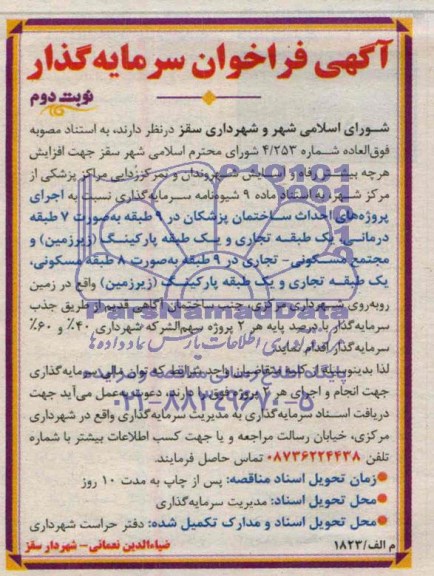 آگهی فراخوان سرمایه‌گذار
نوبت دوم
شورای اسلامی شهر و شهرداری سقز درنظر دارند، به استناد مصوبه
فوق‌العاده شماره ۴/۲۵۳ شورای محترم اسلامی شهر سقز جهت افزایش
هرچه بیشتر رفاه و آسایش شهروندان و تمرکززدایی مراکز پزشکی از
مرکز شهر، به استناد ماده ۹ شیوه‌نامه سرمایه‌گذاری نسبت به اجرای
پروژه‌های احداث ساختمان پزشکان در ۹ طبقه به‌صورت ۷ طبقه
درمانی، یک طبقه تجاری و یک طبقه پارکینگ (زیرزمین) و
مجتمع مسکونی- تجاری در ۹ طبقه به‌صورت ۸ طبقه مسکونی،
یک طبقه تجاری و یک طبقه پارکینگ (زیرزمین) واقع در زمین
روبه‌روی شهرداری مرکزی، جنب ساختمان آگاهی قدیم از طریق جذب
سرمایه‌گذار با درصد پایه هر ۲ پروژه سهم‌الشرکه شهرداری ۴۰٪ و ۶۰٪
سرمایه‌گذار اقدام نمایند.
لذا بدینوسیله از کلیه متقاضیان واجد شرایط که توان مالی سرمایه‌گذاری
جهت انجام و اجرای هر ۲ پروژه فوق را دارند، دعوت به‌عمل می‌آید جهت
دریافت اسناد سرمایه‌گذاری به مدیریت سرمایه‌گذاری واقع در شهرداری
مرکزی، خیابان رسالت مراجعه و یا جهت کسب اطلاعات بیشتر با شماره
تلفن ۰۸۷۳۶۲۲۴۴۳۸ تماس حاصل فرمایند.
زمان تحویل اسناد مناقصه: پس از چاپ به مدت ۱۰ روز
محل تحویل اسناد: مدیریت سرمایه‌گذاری
محل تحویل اسناد و مدارک تکمیل شده: دفتر حراست شهرداری
م الف/۱۸۲۳
ضیاءالدین نعمانی- شهردار سقز
ParsNamadData
۰۲۱-۸۸۳۴۹۶۷۰-۵